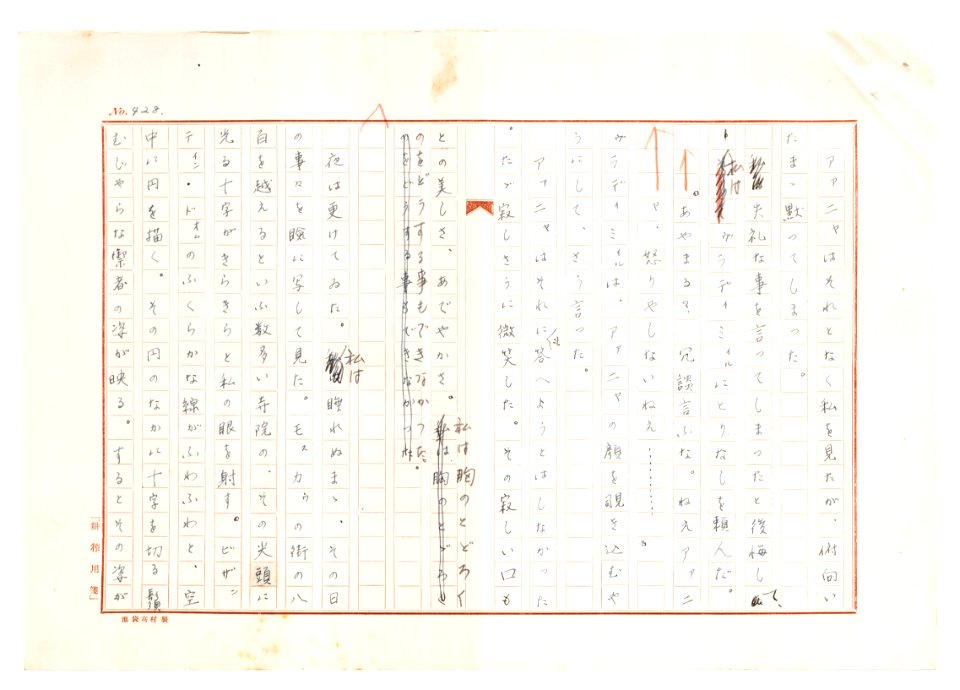 No. 428.
アアニャはそれとなく私を見たが、俯向い
たまゝ黙ってしまった。
失礼な事を言ってしまったと後悔して、
私はヴラディミィルにとりなしを頼んだ。
あやまる? 冗談言ふな。ねえアアニ
ャ、怒りやしないねえ…………。
ヴラディミィルは、アアニャの顔を覗き込むや
うにして、さう言った。
アアニャはそれに答へようとはしなかった
。たゞ寂しさうに微笑した。その寂しい口も
との美しさ、あでやかさ。私は胸のとどろく
のをどうする事もできなかった。
夜は更けてゐた。私は睡れぬまゝ、その日
の事々を瞼に写して見た。モスカウの街の八
百を越えるといふ数多い寺院の、その尖頭に
光る十字がきらきらと私の眼を射す。ビザン
ティン・ドオムのふくらかな線がふわふわと、空
中に円を描く。その円のなかに十字を切る鬚
むじゃらな馭者の姿が映る。するとその姿が
池袋高村製